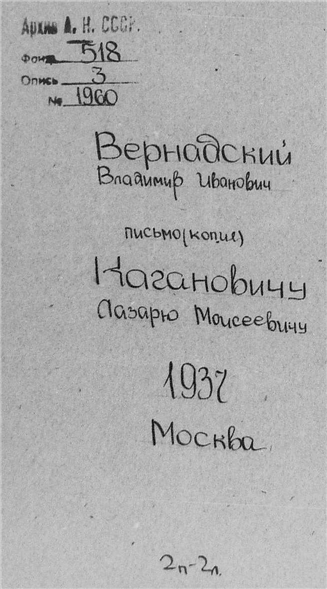 Архив А. Н. СССР.
Фонд 518
Опись 3
№ 1960
Вернадский
Владимир Иванович
письмо(копия)
Кагановичу
Лазарю Моисеевичу
1937
Москва
2п-2л.